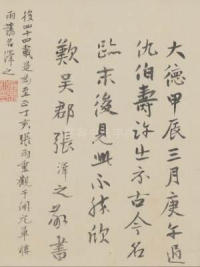 大德甲辰三月庚午過
仇伯壽許出示古今名
臨末後見此不勝欣
歎吳郡張澤之敬書
後四十四載是為至正丁亥張雨重觀于開元草時
雨舊名澤之